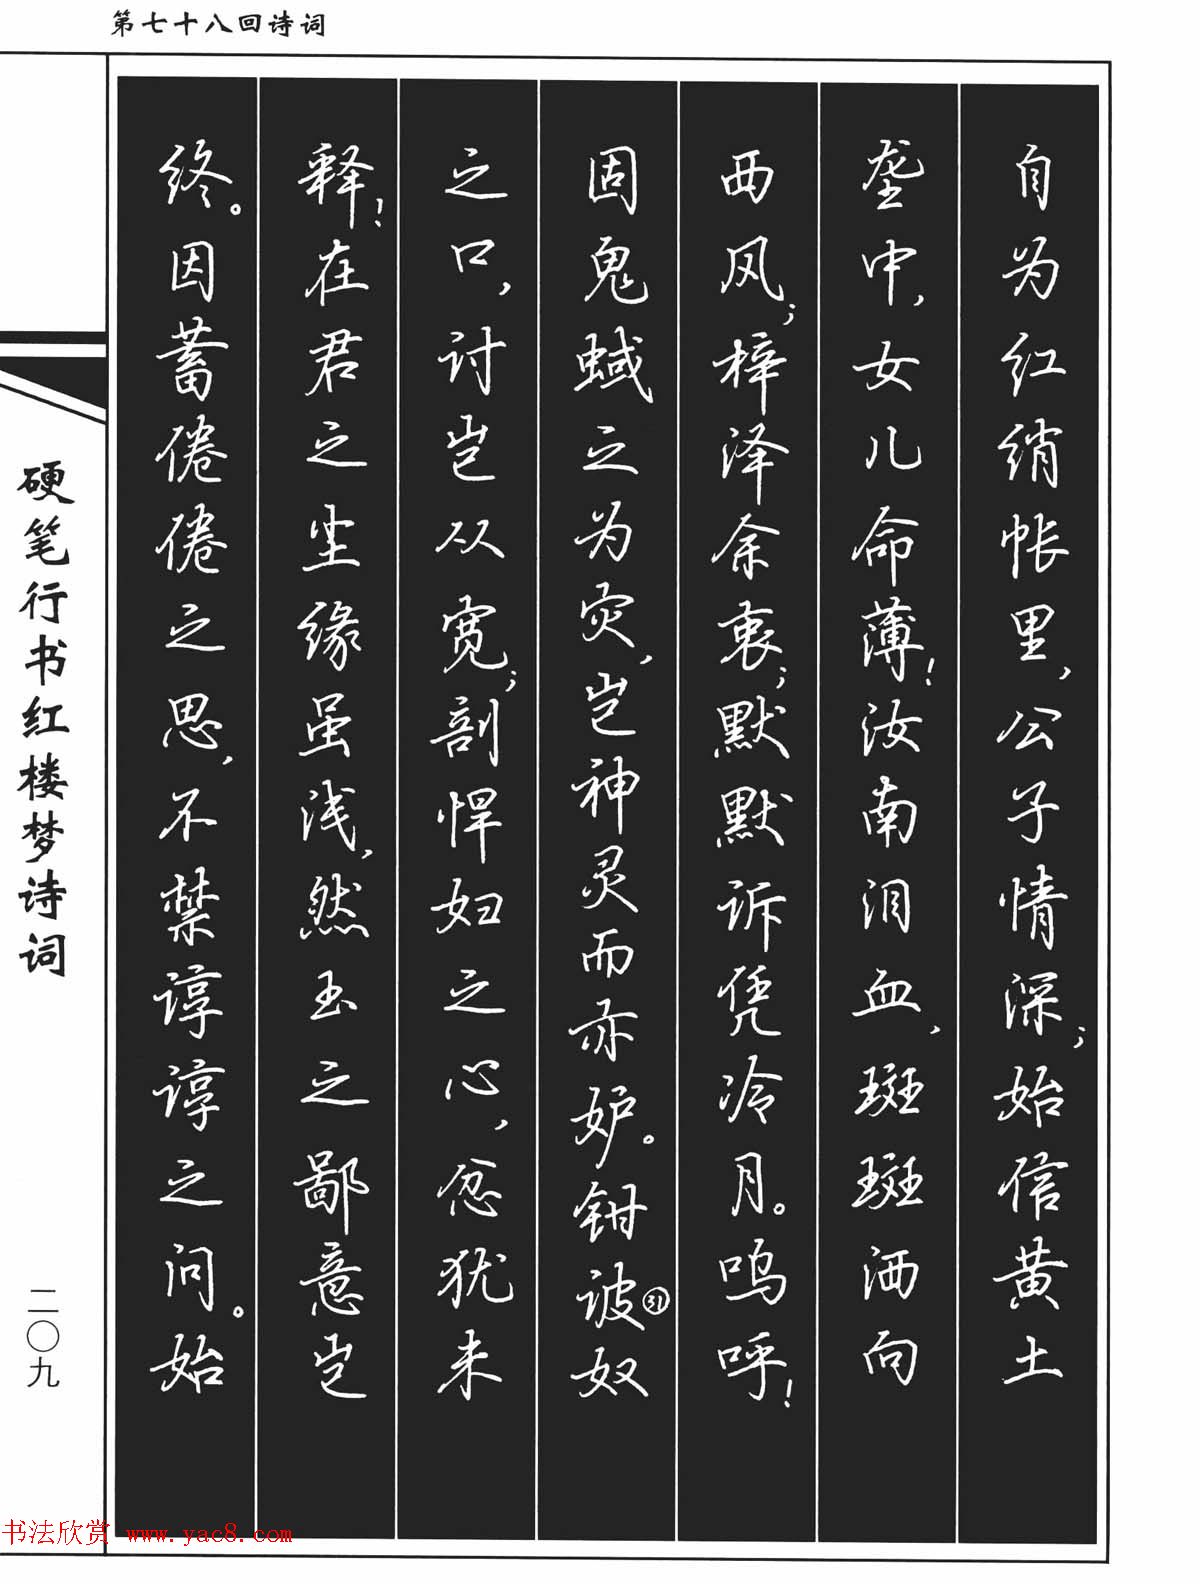 第七十八回诗词
自为红绡帐里，公子情深；始信黄土
垄中，女儿命薄！汝南泪血，斑斑洒向
西风；梓泽余衷；默默诉凭冷月。呜呼！
固鬼蜮之为灾，岂神灵而亦妒。钳诐㉛奴
之口，讨岂从宽；剖悍妇之心，忿犹未
释！在君之尘缘虽浅，然玉之鄙意岂
终。因蓄倦倦之思，不禁谆谆之问。始
硬笔行书红楼梦诗词
二〇九
书法欣赏 www.yac8.com